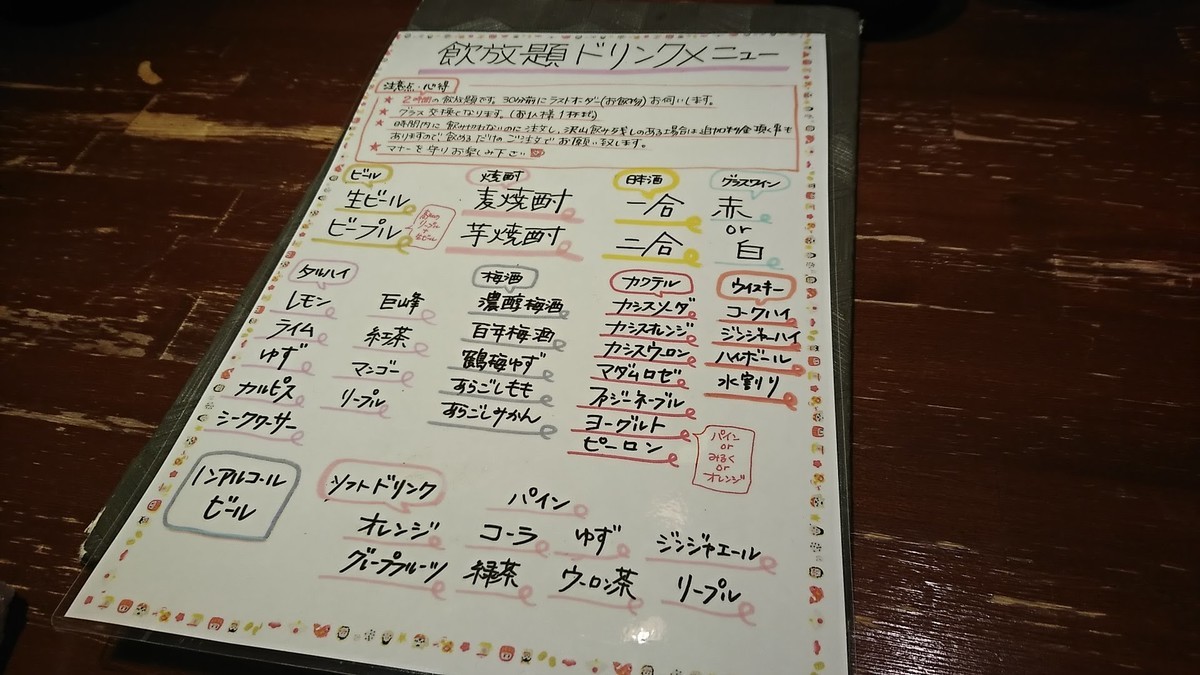 飲放題ドリンクメニュー
注意点・心得
★ 2時間の飲放題です。30分前にラストオーダー(お飲物)お伺いします。
★ グラス交換となります。(お1人様1杯まで)
★ 時間内に飲み切れないのに注文し、沢山飲み残しのある場合は追加料金頂く事も
ありますので飲めるだけのご注文でお願い致します。
★ マナーを守りお楽しみ下さい
ビール
生ビール
ビープル
リープル
+
生ビール
焼酎
麦焼酎
芋焼酎
日本酒
一合
二合
グラスワイン
赤
or
白
タルハイ
レモン
ライム
ゆず
カルピス
シークワーサー
巨峰
紅茶
マンゴー
リープル
梅酒
濃醇梅酒
百年梅酒
鶴梅ゆず
あらごしもも
あらごしみかん
カクテル
カシスソーダ
カシスオレンジ
カシスウーロン
マダムロゼ
ファジーネーブル
ヨーグルト
ピーロン
パイン
or
みるく
or
オレンジ
ウイスキー
コークハイ
ジンジャーハイ
ハイボール
水割り
ノンアルコール
ビール
ソフトドリンク
パイン
オレンジ コーラ ゆず ジンジャエール
グレープフルーツ 緑茶 ウーロン茶 リープル